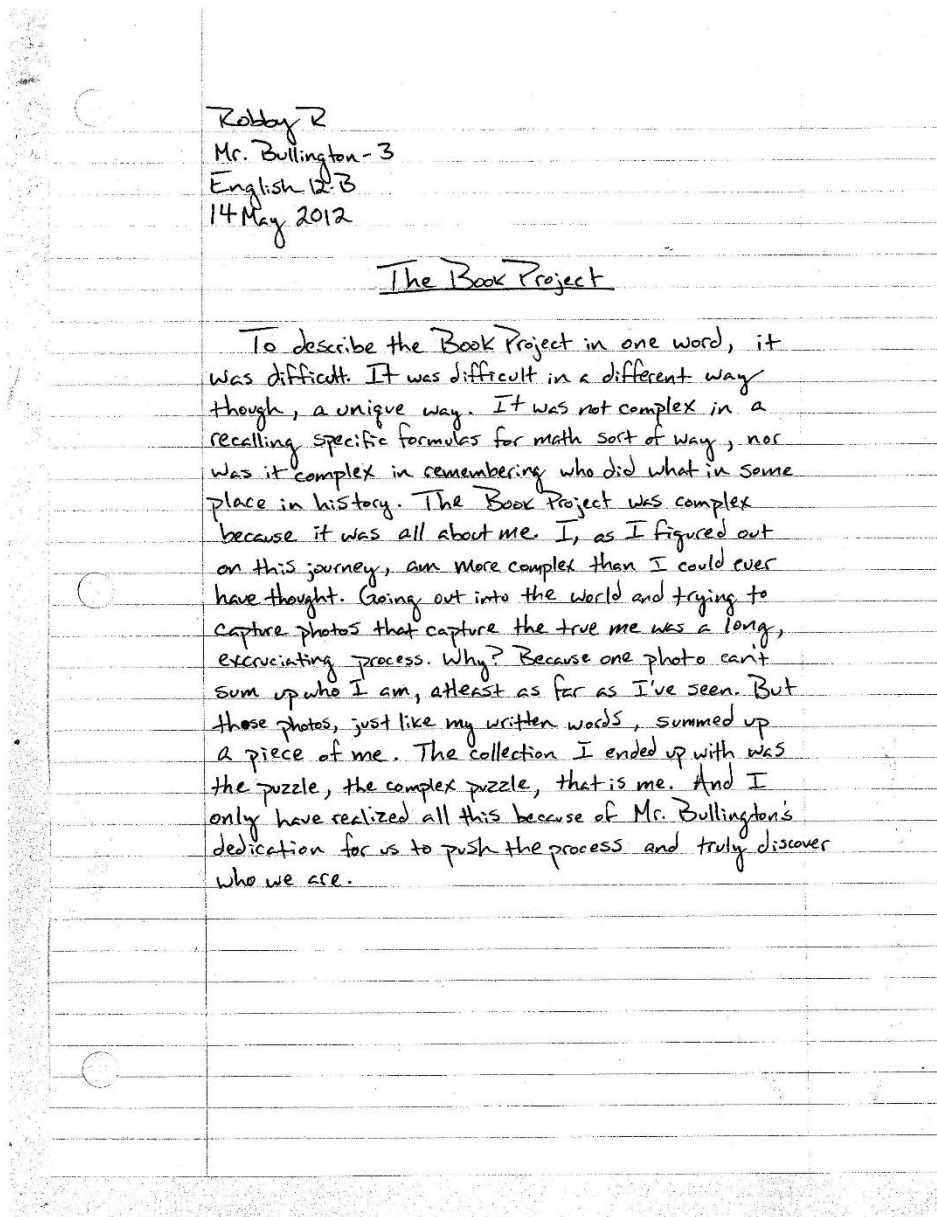 Robby R
Mr. Bullington - 3
English 12-B
14 May 2012
The Book Project
To describe the Book Project in one word, it
was difficult. It was difficult in a different way
though, a unique way. It was not complex in a
recalling specific formulas for math sort of way, nor
was it complex in remembering who did what in some
place in history. The Book Project was complex
because it was all about me. I, as I figured out
on this journey, am more complex than I could ever
have thought. Going out into the world and trying to
capture photos that capture the true me was a long,
excruciating process. Why? Because one photo can't
sum up who I am, atleast as far as I've seen. But
those photos, just like my written words, summed up
a piece of me. The collection I ended up with was
the puzzle, the complex puzzle, that is me. And I
only have realized all this because of Mr. Bullington's
dedication for us to push the process and truly discover
who we are.